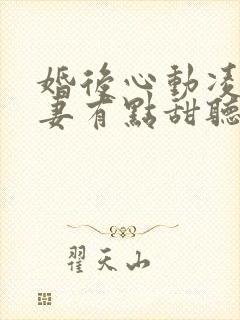 婚後心動凌
妻有點甜聽
翟天山